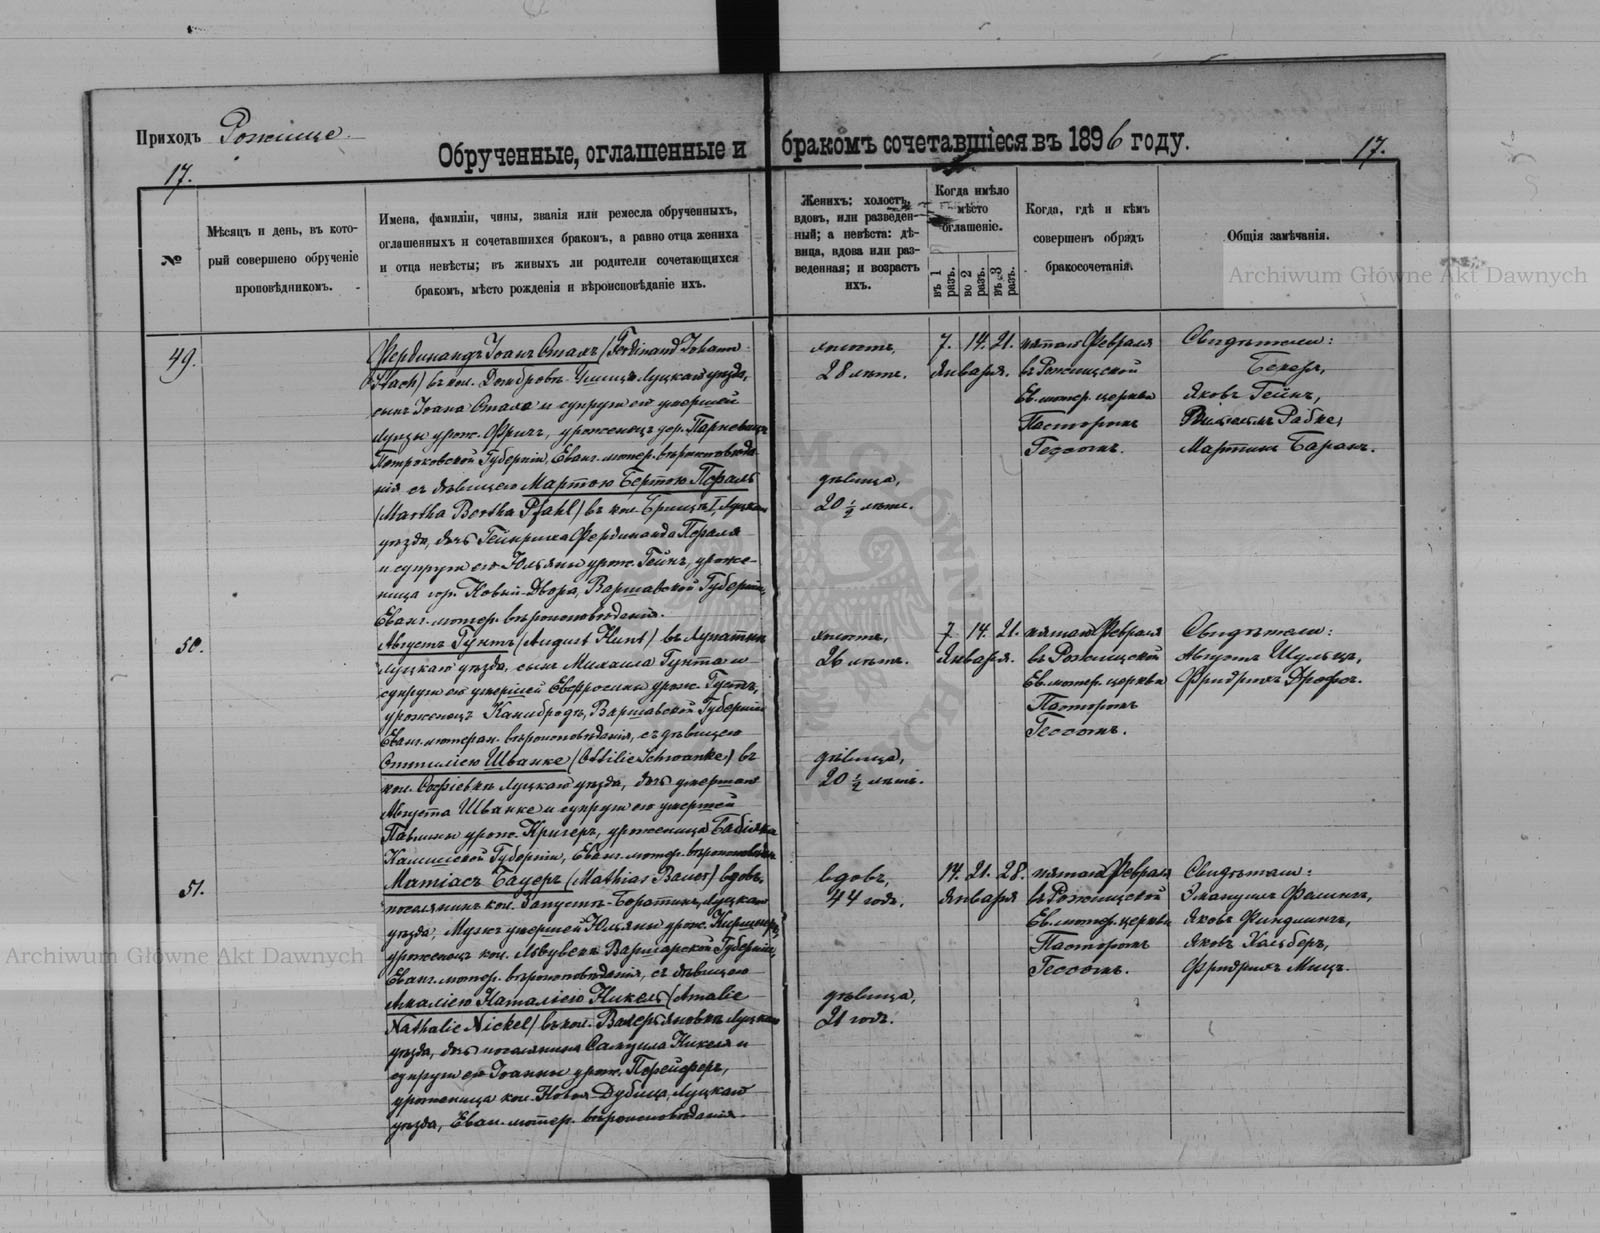 Приходъ Рожище
17.
Обрученные, оглашенные и бракомъ сочетавшіеся въ 1896 году.
17.
№
Мѣсяцъ и день, въ кото-
рый совершено обрученіе
проповѣдникомъ.
Имена, фамиліи, чины, званія или ремесла обрученныхъ,
оглашенныхъ и сочетавшихся бракомъ, а равно отца жениха
и отца невѣсты; въ живыхъ ли родители сочетающихся
бракомъ, мѣсто рожденія и вѣроисповѣданіе ихъ.
Женихъ: холостъ,
вдовъ, или разведен-
ный; а невѣста: дѣ-
вица, вдова или раз-
веденная; и возрастъ
ихъ.
Когда имѣло
мѣсто
оглашеніе.
въ 1 разъ.
во 2 разъ.
въ 3 разъ.
Когда, гдѣ и кѣмъ
совершенъ обрядъ
бракосочетанія.
Общія замѣчанія.
Archiwum Główne Akt Dawnych
49.
Фердинандъ Іоанъ Стахъ (Ferdinand Johann
Stach) въ кол. Луцкаго уѣзда,
сынъ Іоана Стаха и супруги его умершей
урож. Фричъ, уроженецъ дер.
Петроковской Губерніи, Еванг. лютер. вѣроисповѣда-
нія съ дѣвицею Мартою Бертою Пфаль
(Martha Bertha Pfahl) въ кол. Луцкаго
уѣзда, дочь Гейнриха Фердинанда Пфаля
и супруги его Юльяны урож. Гейнъ, уроже-
ница гор. Новый-Дворъ, Варшавской Губерніи,
Еванг. лютер. вѣроисповѣданія.
холостъ,
28 лѣтъ.
дѣвица,
20 ½ лѣтъ.
7. 14. 21.
Января.
пятаго Февраля
въ Рожищской
Ев. лютер. церкви
Пасторомъ
Свидѣтели:
Яковъ Гейнъ,
Мартинъ Баранъ.
50.
Августъ Гунтъ (August Hunt) въ
Луцкаго уѣзда, сынъ Михаила Гунта и
супруги его умершей Евфросины урож.
уроженецъ Варшавской Губерніи
Еванг. лютеран. вѣроисповѣданія, съ дѣвицею
Оттиліею Шванке (Ottilie Schwanke) въ
кол. Софіевкѣ Луцкаго уѣзда, дочь умершаго
Августа Шванке и супруги его умершей
Павлины урож. Кригеръ, уроженица
Калишской Губерніи, Еванг. лютер. вѣроисповѣдан.
холостъ,
26 лѣтъ.
дѣвица,
20 ½ лѣтъ.
7. 14. 21.
Января.
пятаго Февраля
въ Рожищской
Ев. лютер. церкви
Пасторомъ
Свидѣтели:
Августъ Шульцъ,
Фридрихъ
51.
Матіасъ Бауеръ (Mathias Bauer) вдовъ,
поселянинъ кол. Запустъ- Луцкаго
уѣзда, мужъ умершей Юльяны урож.
уроженецъ кол. Варшавской Губерніи,
Еванг. лютер. вѣроисповѣданія, съ дѣвицею
Амаліею Наталіею Никель (Amalie
Nathalie Nickel) въ кол. Валерьяновкѣ Луцкаго
уѣзда, дочь поселянина Самуила Никеля и
супруги его Іоанны урож. Пфейферъ,
уроженица кол. Новая-Дубица, Луцкаго
уѣзда, Еван. лютер. вѣроисповѣданія.
вдовъ,
44 годъ.
дѣвица,
21 годъ.
14. 21. 28.
Января
пятаго Февраля
въ Рожищской
Ев. лютер. церкви
Пасторомъ
Свидѣтели:
Эмануилъ
Яковъ
Яковъ
Фридрихъ
Archiwum Główne Akt Dawnych